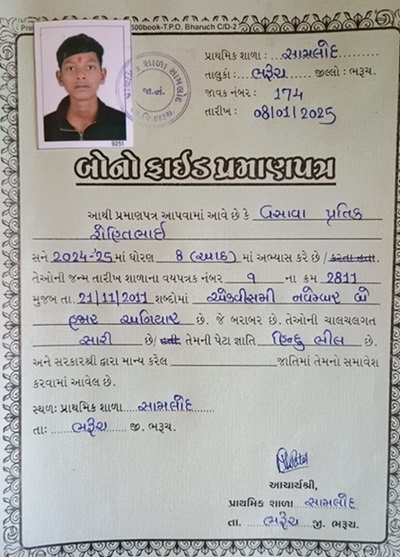 500book-T.P.O. Bharuch C/D-2
9251
પ્રાથમિક શાળા : સામલોદ
તાલુકો : ભરૂચ જીલ્લો : ભરૂચ.
જાવક નંબર : 174
તારીખ : 08/01/2025
બોનોફાઈડ પ્રમાણપત્ર
આથી પ્રમાણપત્ર આપવામાં આવે છે કે વસાવા પ્રતિક
રોહિતભાઈ
સને 2024-'25 માં ધોરણ 8 (આઠ) માં અભ્યાસ કરે છે / કરતા હતા.
તેઓની જન્મ તારીખ શાળાના વયપત્રક નંબર 9 ના ક્રમ 2811
મુજબ તા. 21/11/2011 શબ્દોમાં એકવીસમી નવેમ્બર બે
હજાર અગિયાર છે. જે બરાબર છે. તેઓની ચાલચલગત
સારી છે/ હતી તેમની પેટા જાતિ હિન્દુ ભીલ છે.
અને સરકારશ્રી દ્વારા માન્ય કરેલ જાતિમાં તેમનો સમાવેશ
કરવામાં આવેલ છે.
સ્થળ: પ્રાથમિક શાળા સામલોદ
તા: ભરૂચ જી. ભરૂચ.
આચાર્યશ્રી,
પ્રાથમિક શાળા સામલોદ
તા. ભરૂચ જી. ભરૂચ.